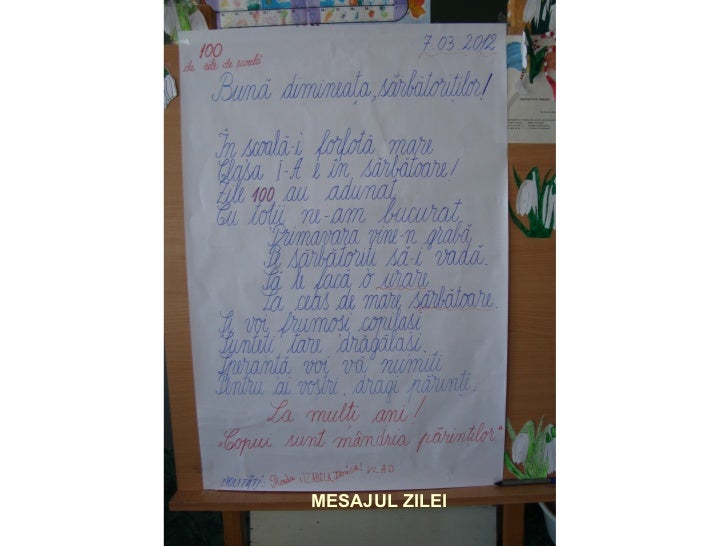 100
de zile de școală
7.03.2012
Bună dimineața, sărbătoriților!
În școală-i forfotă mare
Clasa I-A e în sărbătoare!
Zile 100 au adunat
Cu toții ne-am bucurat
Primavara vine-n grabă
Pe sărbătoriti să-i vadă.
Să le facă o urare
La ceas de mare sărbătoare.
Și voi frumoși copilași
Sunteți tare drăgălași
Speranță voi vă numiți
Pentru ai voștri, dragi părinți.
La mulți ani!
"Copiii sunt mândria părinților"
NOUTĂȚI: IZABELA, VLAD
MESAJUL ZILEI